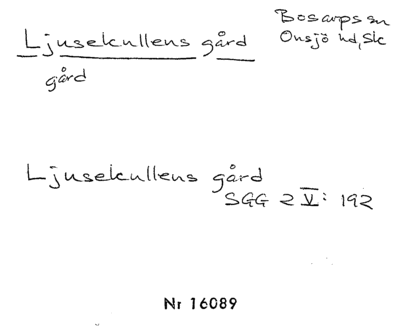 Ljusekullens gård
Bosarps sn
Onsjö hd, Sk
gård
Ljusekullens gård
SGG 2 V: 192
Nr 16089